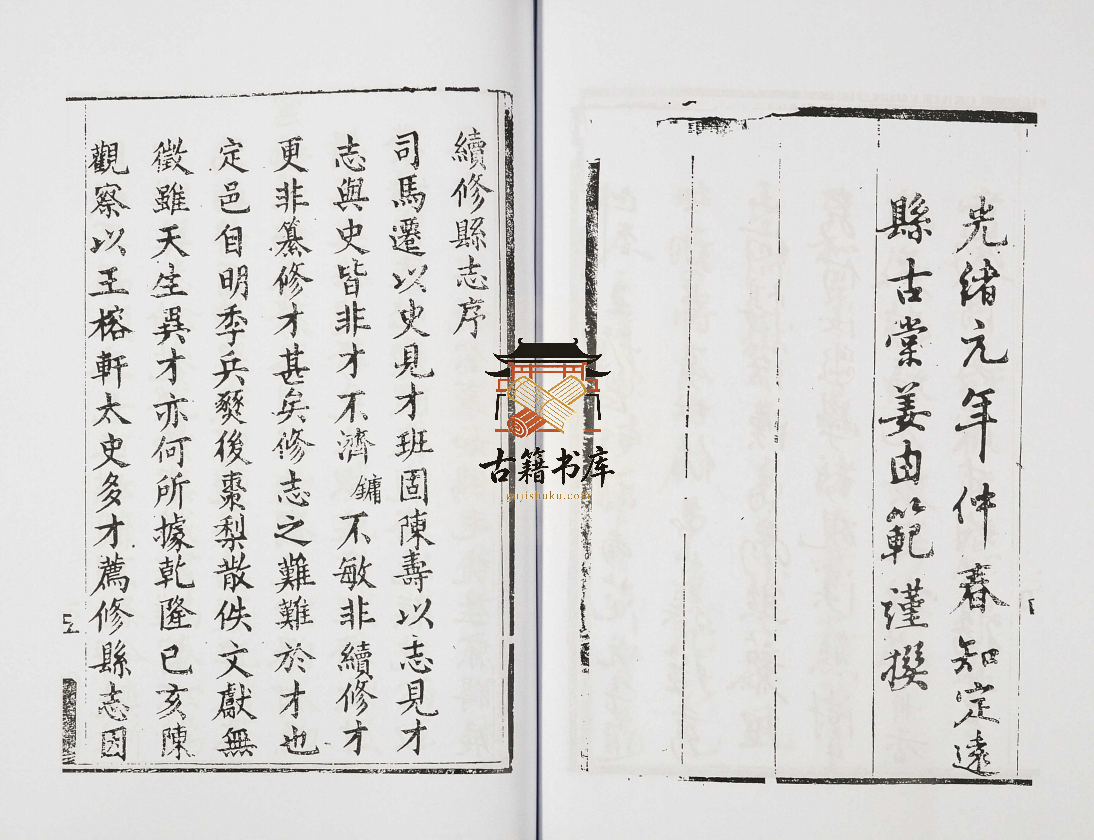 光緒元年仲春知定遠
縣古棠姜由範謹撰
續修縣志序
司馬遷以史見才班固陳壽以志見才
志與史皆非才不濟鏞不敏非續修才
更非纂修才甚矣修志之難難於才也
定邑自明季兵燹後棗梨散佚文獻無
徵雖天生異才亦何所據乾隆己亥陳
觀察以王榕軒太史多才薦修縣志因
五
古籍书库
gujishuku.com